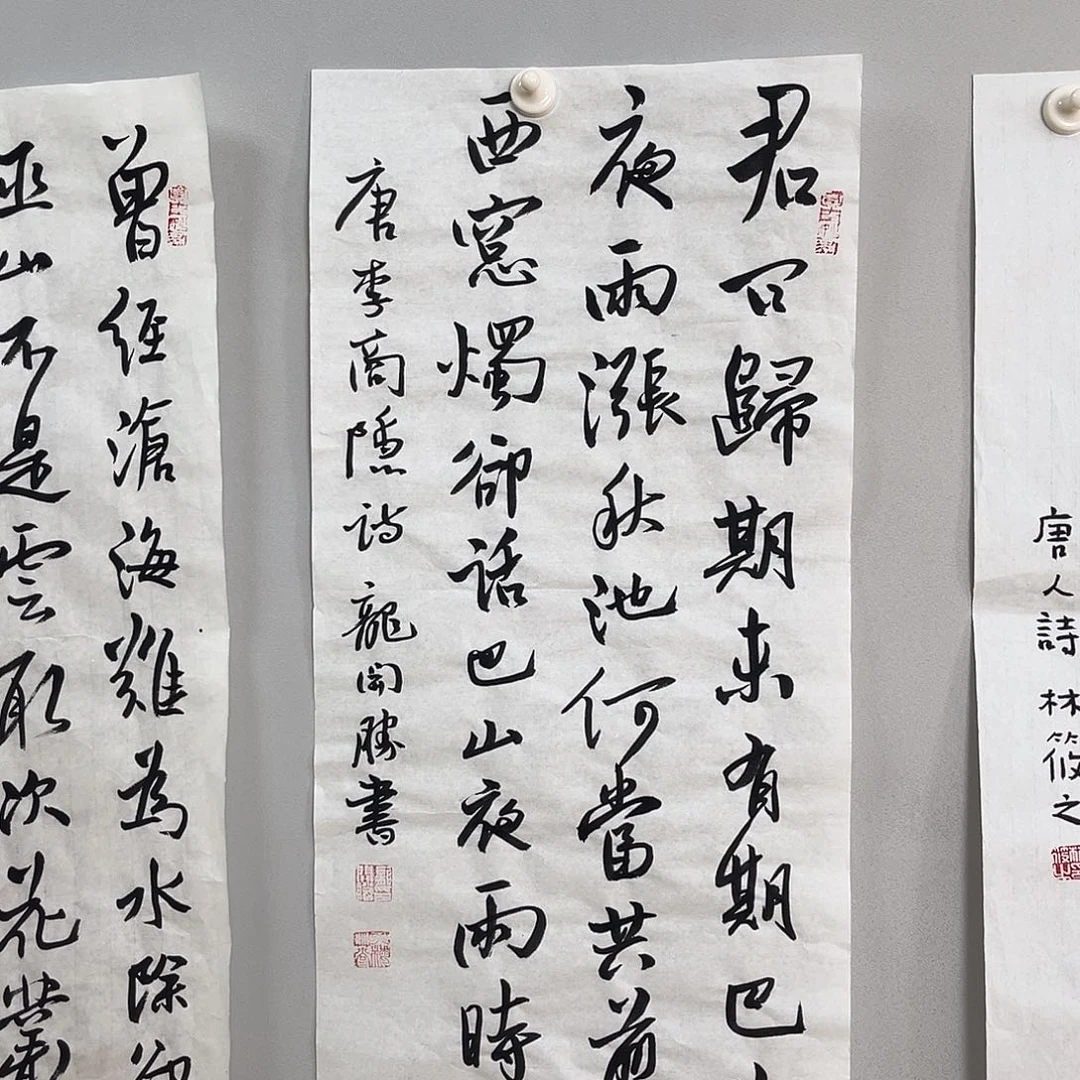 唐人詩 林筱之
君問歸期未有期巴
夜雨漲秋池何當共剪
西窓燭卻話巴山夜雨時
唐李商隱詩 龍開勝書
曾經滄海難為水除卻
巫山不是雲取次花叢